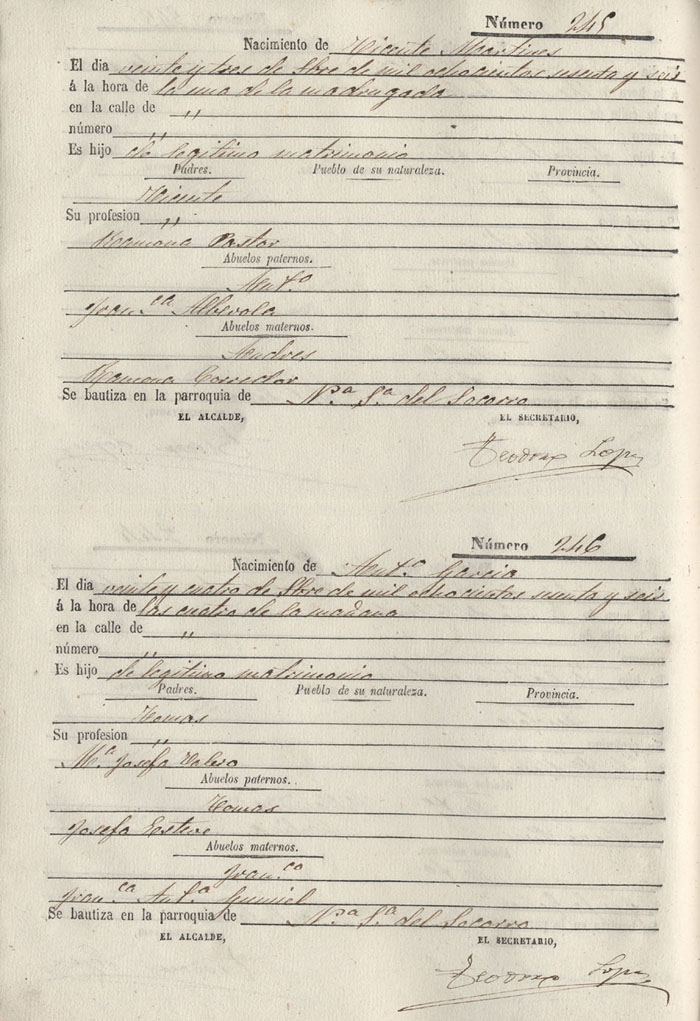 Número 245
Nacimiento de Vicente Martines
El dia veinte y tres de 8bre de mil ochocientos sesenta y seis
á la hora de la una de la madrugada
en la calle de "
número "
Es hijo de legitimo matrimonio
Padres. Pueblo de su naturaleza. Provincia.
Vicente
Su profesion "
Ramona Pastor
Abuelos paternos.
Ant.º
Fran.ca Alberola
Abuelos maternos.
Andres
Ramona Corredor
Se bautiza en la parroquia de N.ra S.ra del Socorro
EL ALCALDE, EL SECRETARIO,
Teodoro Lopez
Número 246
Nacimiento de Ant.ª Garcia
El dia veinte y cuatro de 8bre de mil ochocientos sesenta y seis
á la hora de las cuatro de la mañana
en la calle de "
número "
Es hijo de legitimo matrimonio
Padres. Pueblo de su naturaleza. Provincia.
Tomas
Su profesion "
M.ª Josefa Valero
Abuelos paternos.
Tomas
Josefa Esteve
Abuelos maternos.
Fran.co
Fran.ca Ant.ª Gumiel
Se bautiza en la parroquia de N.ra S.ra del Socorro
EL ALCALDE, EL SECRETARIO,
Teodoro Lopez